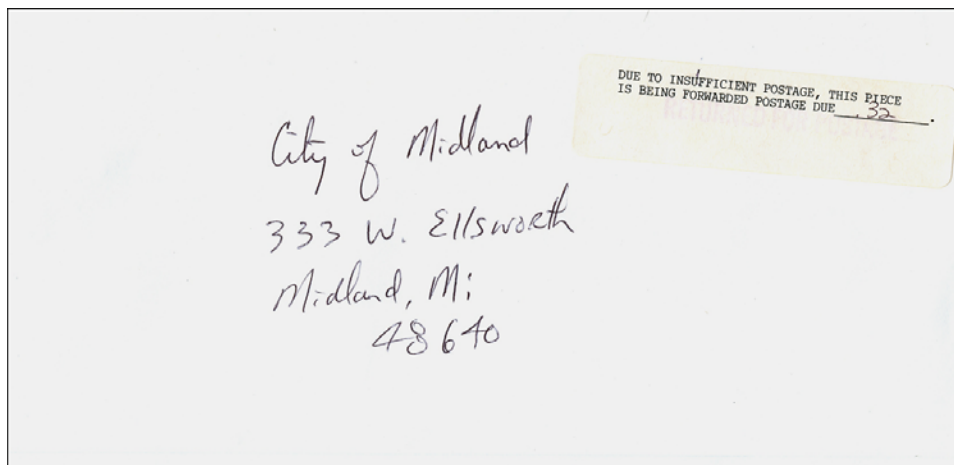 DUE TO INSUFFICIENT POSTAGE, THIS PIECE
IS BEING FORWARDED POSTAGE DUE .32 .
RETURNED FOR POSTAGE
City of Midland
333 W. Ellsworth
Midland, Mi
48640